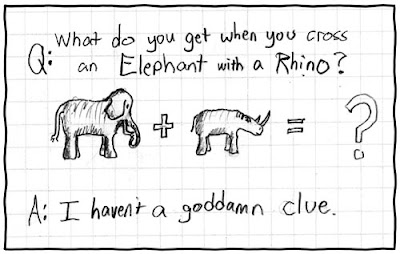 Q: What do you get when you cross
an Elephant with a Rhino?
+ = ?
A: I haven't a goddamn clue.